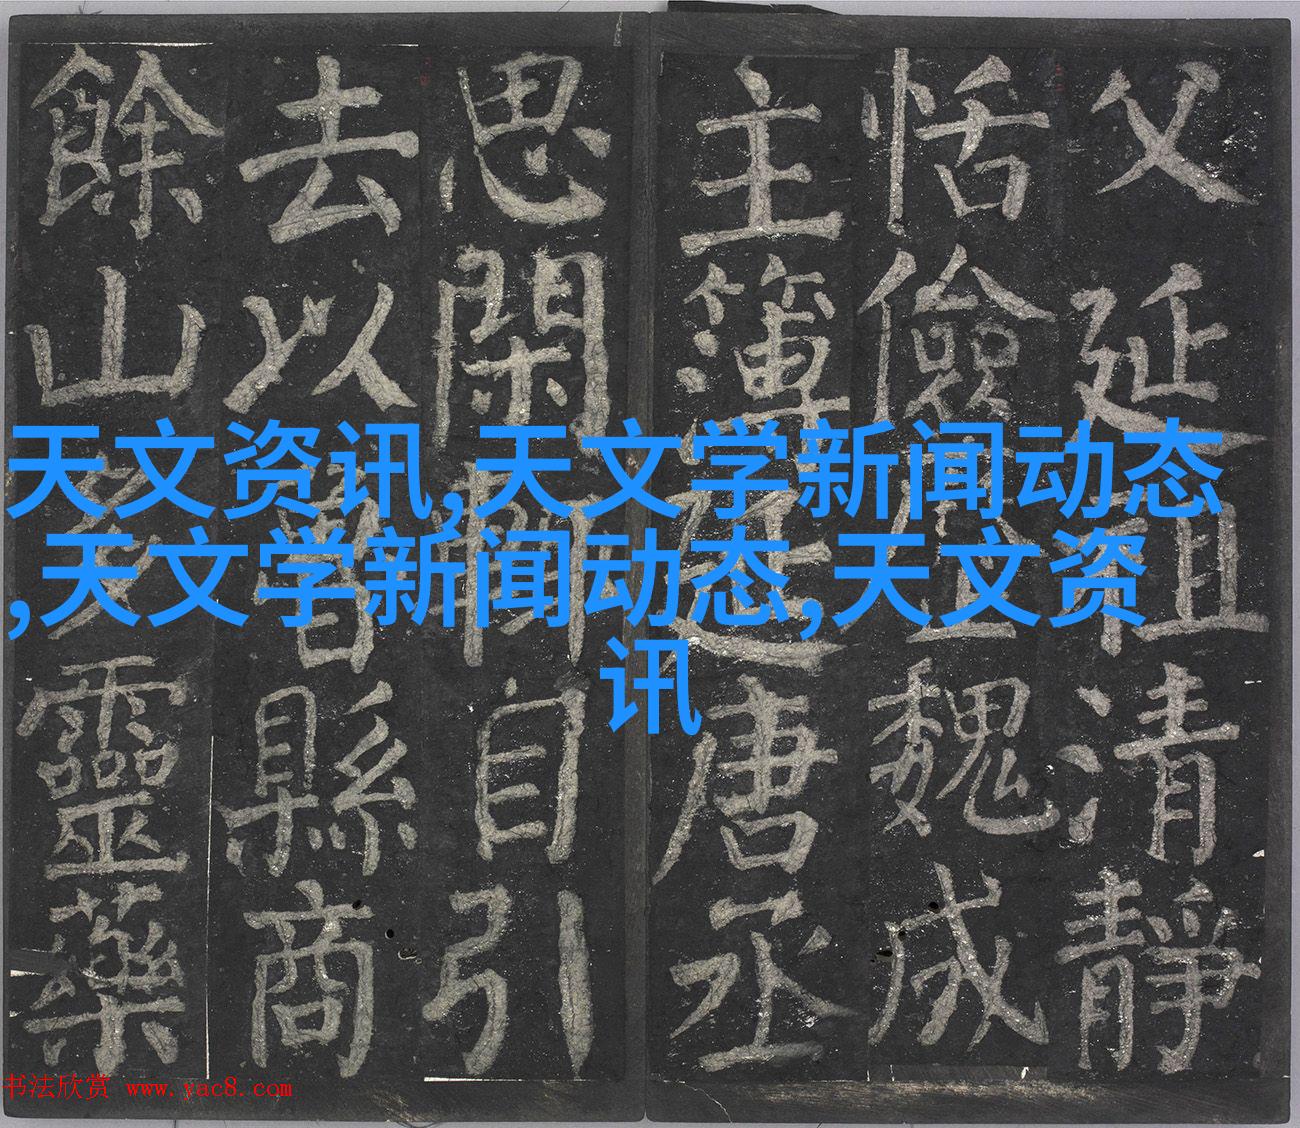 父延祖清靜
恬儉魏成
主簿唐丞
思閑自引
去以縣商
餘山多靈藥
天文资讯,天文学新闻动态
,天文学新闻动态,天文资
讯
书法欣赏 www.yac8.com